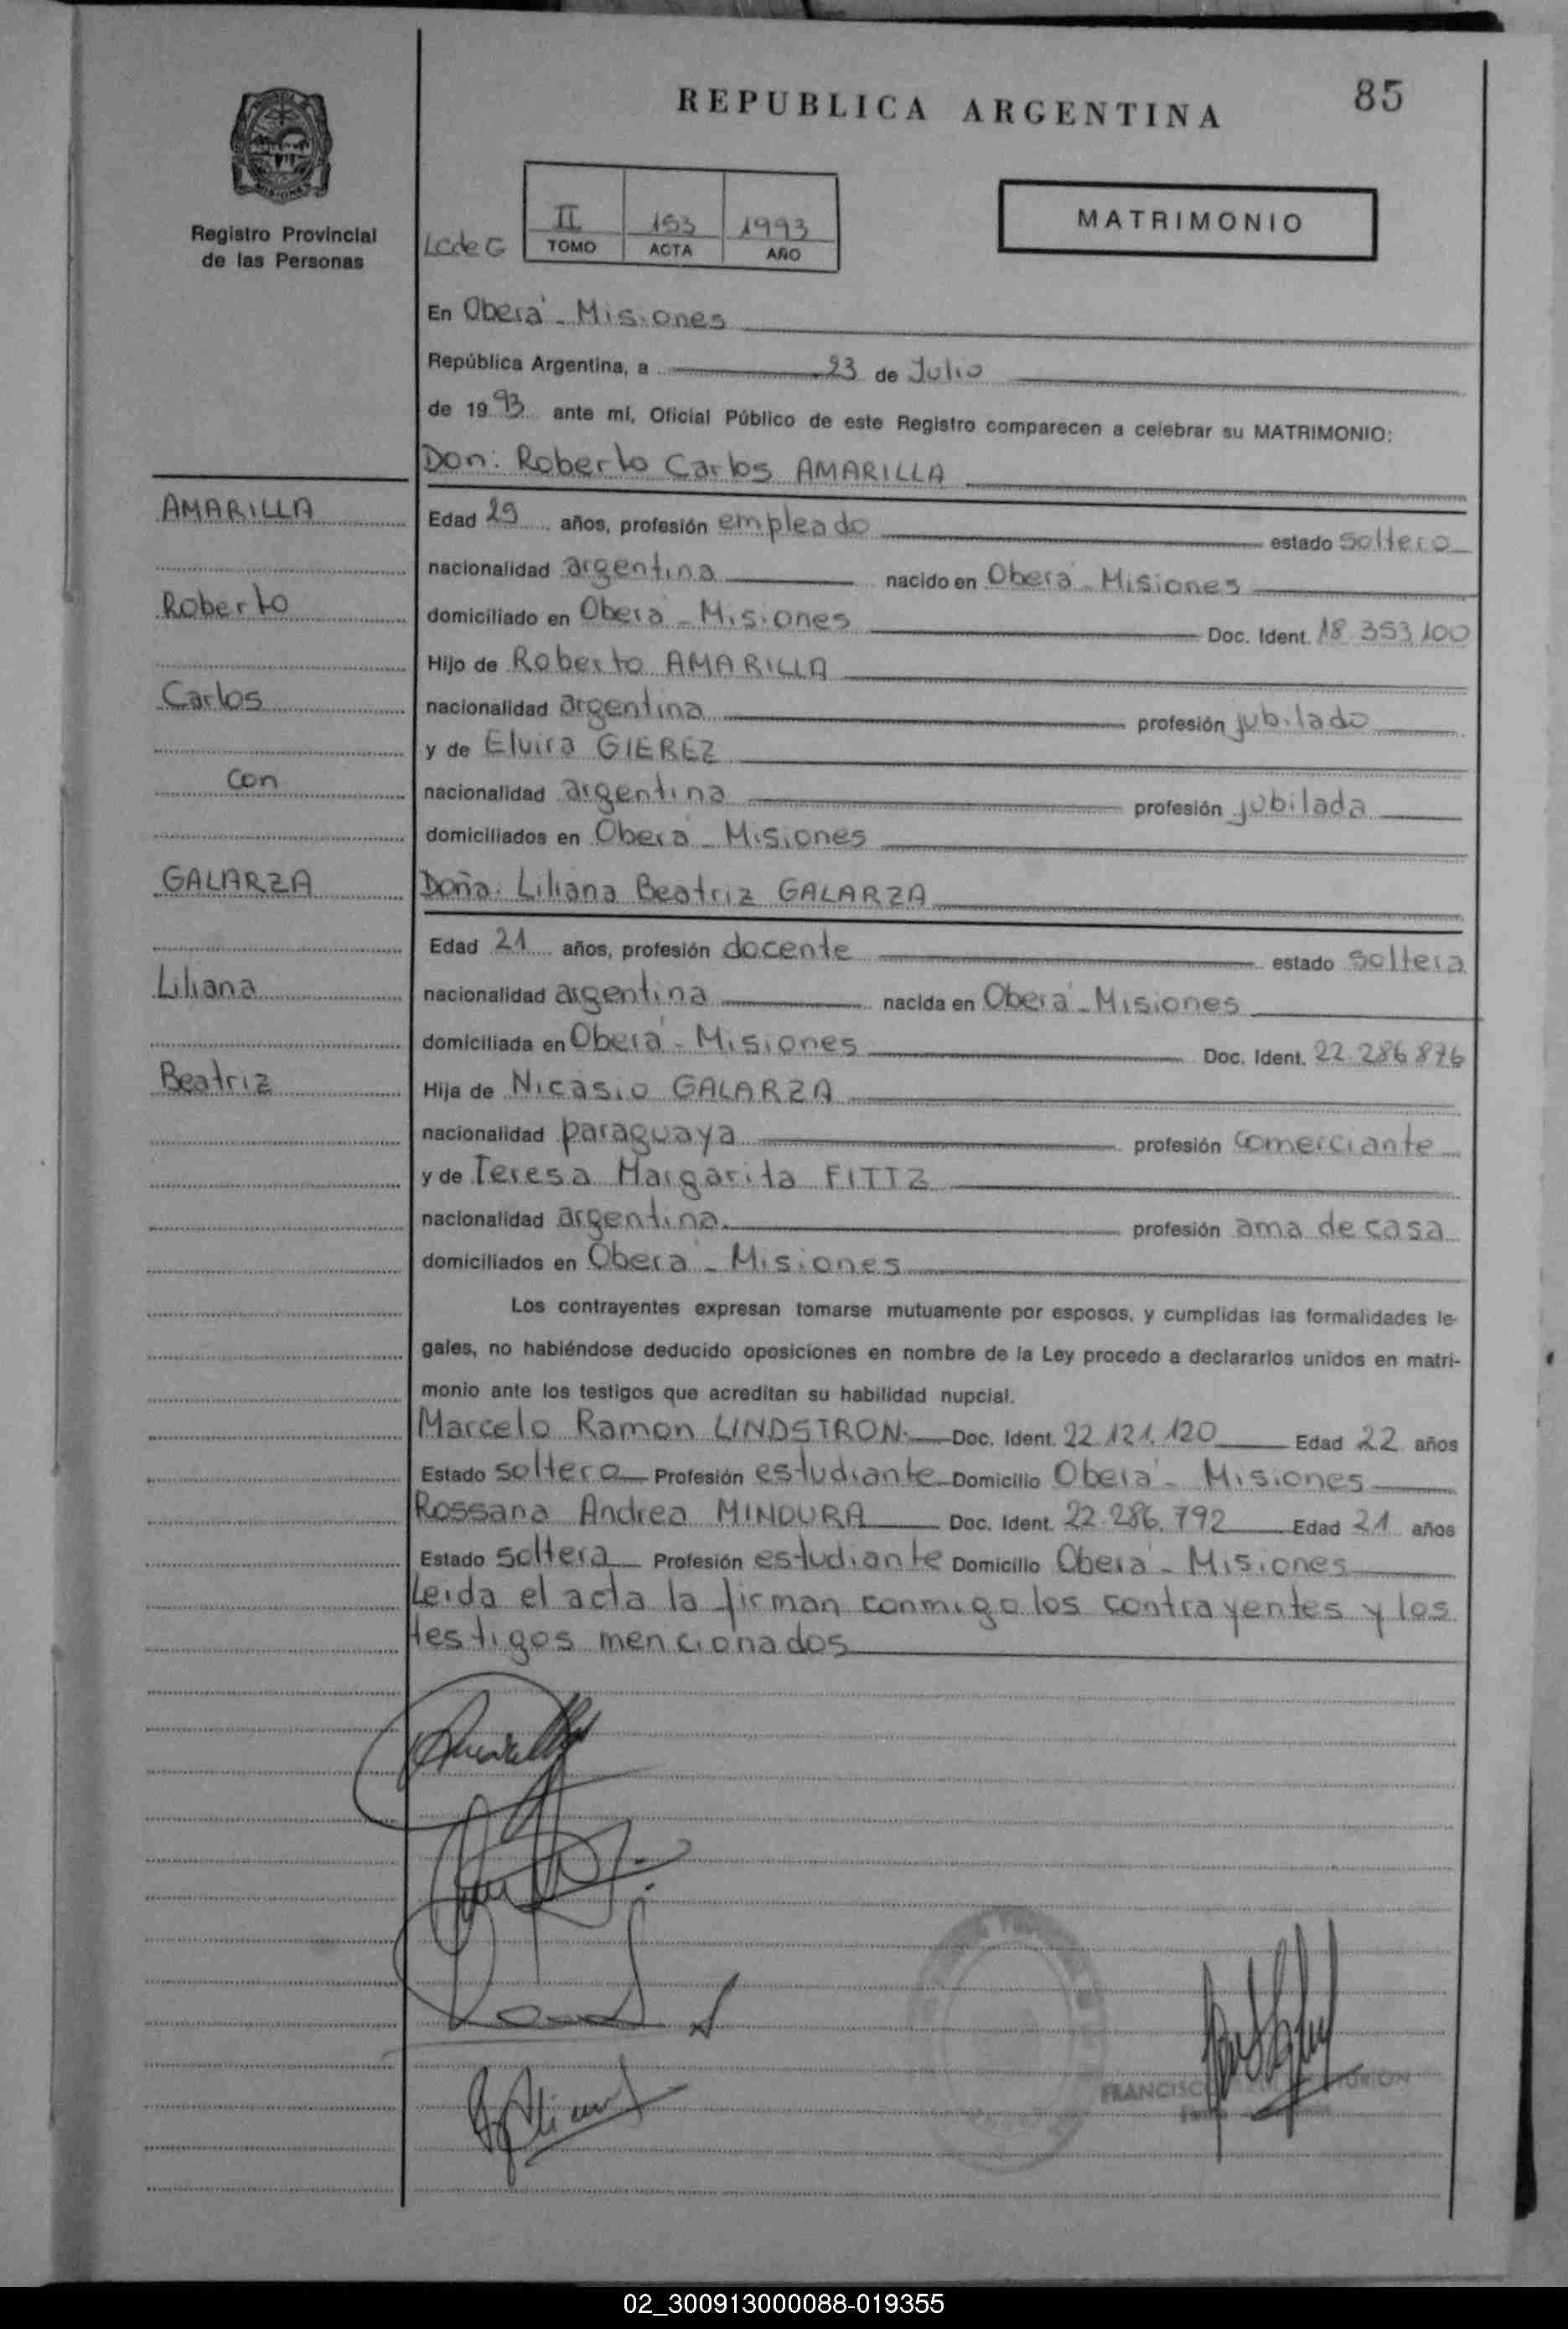 85
REPUBLICA ARGENTINA
MISIONES
Registro Provincial
de las Personas
MATRIMONIO
II 153 1993
TOMO ACTA AÑO
En Oberá - Misiones
República Argentina, a 23 de Julio
de 1993 ante mí, Oficial Público de este Registro comparecen a celebrar su MATRIMONIO:
Don: Roberto Carlos AMARILLA
AMARILLA
Edad 25 años, profesión empleado estado soltero
nacionalidad argentina nacido en Oberá - Misiones
Roberto
domiciliado en Oberá - Misiones Doc. Ident. 18.353.100
Hijo de Roberto AMARILLA
Carlos
nacionalidad argentina profesión jubilado
y de Elvira GIEREZ
con
nacionalidad argentina profesión jubilada
domiciliados en Oberá - Misiones
GALARZA
Doña: Liliana Beatriz GALARZA
Edad 21 años, profesión docente estado soltera
Liliana
nacionalidad argentina nacida en Oberá - Misiones
domiciliada en Oberá - Misiones Doc. Ident. 22.286.876
Beatriz
Hija de Nicasio GALARZA
nacionalidad paraguaya profesión comerciante
y de Teresa Margarita FITTZ
nacionalidad argentina profesión ama de casa
domiciliados en Oberá - Misiones
Los contrayentes expresan tomarse mutuamente por esposos, y cumplidas las formalidades le-
gales, no habiéndose deducido oposiciones en nombre de la Ley procedo a declararlos unidos en matri-
monio ante los testigos que acreditan su habilidad nupcial.
Marcelo Ramon LINDSTRON. Doc. Ident. 22.121.120 Edad 22 años
Estado soltero Profesión estudiante Domicilio Oberá - Misiones
Rossana Andrea MINDURA Doc. Ident. 22.286.792 Edad 21 años
Estado soltera Profesión estudiante Domicilio Oberá - Misiones
Leida el acta la firman conmigo los contrayentes y los
testigos mencionados
02_300913000088-019355